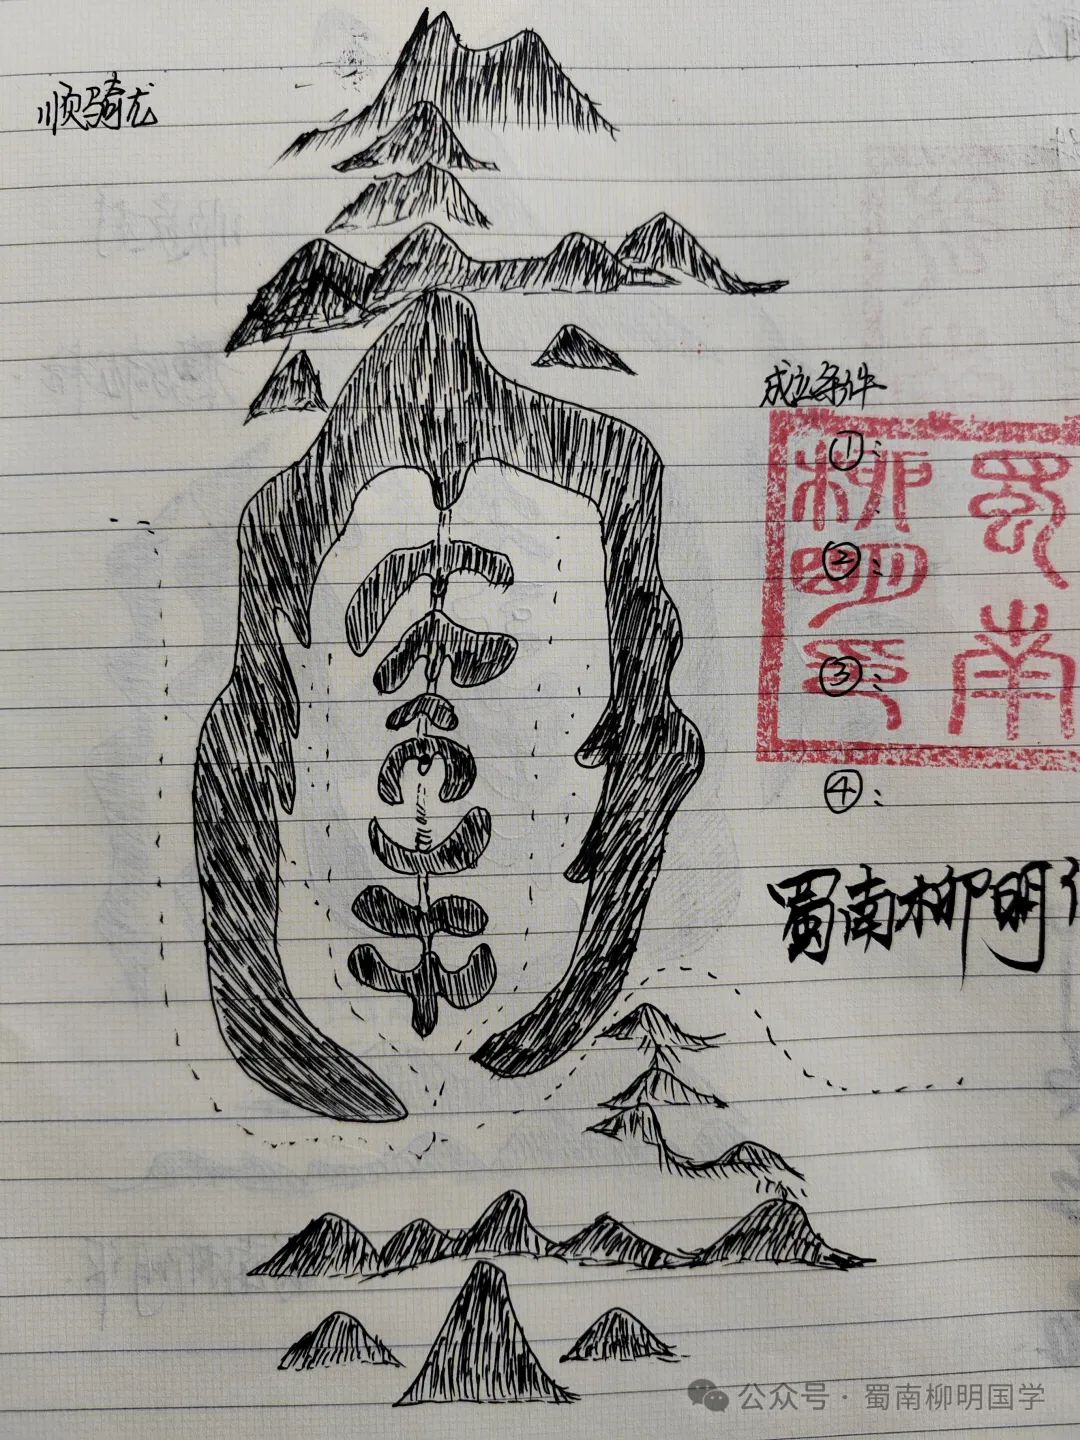 顺骑龙
成立条件
①：
②：
③：
④：
蜀南
柳明印
蜀南柳明
公众号 · 蜀南柳明国学